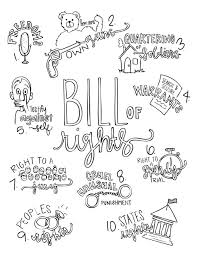 FREEDOMS
1
2
own guns
QUARTERING
of
soldiers
3
BILL
OF
rights
4
WARRANTS
5
testify
against
self
6
RIGHT TO
TRIAL
RIGHT TO A
7
8
CRUEL
UNUSUAL
PUNISHMENT
9
PEOPLES
rights
10
STATES
rights